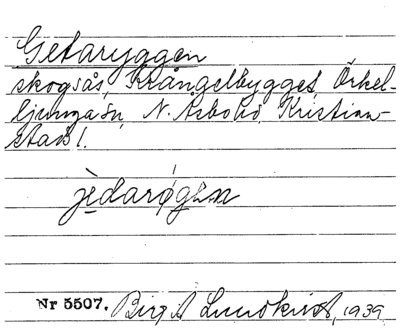 Getaryggen
skogsås, Krångelbygget, Örkel-
ljunga sn, N. Åsbo hd. Kristian-
stads l.
jèdarøgen
Nr 5507. Birgit Lundkvist, 1939